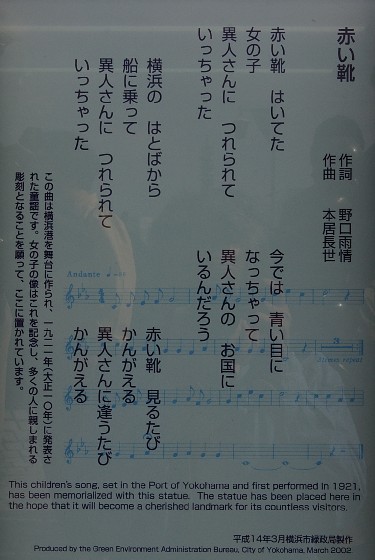 赤い靴
作詞　野口雨情
作曲　本居長世
赤い靴　はいてた
女の子
異人さんに　つれられて
いっちゃった
横浜の　はとばから
船に乗って
異人さんに　つれられて
いっちゃった
今では　青い目に
なっちゃって
異人さんの　お国に
いるんだろう
赤い靴　見るたび
かんがえる
異人さんに逢うたび
かんがえる
Andante
この曲は横浜港を舞台に作られ、一九二一年(大正一〇年)に発表さ
れた童謡です。女の子の像はこれを記念し、多くの人に親しまれる
彫刻となることを願って、ここに置かれています。
This children's song, set in the Port of Yokohama and first performed in 1921,
has been memorialized with this statue. The statue has been placed here in
the hope that it will become a cherished landmark for its countless visitors.
平成14年3月横浜市緑政局製作
Produced by the Green Environment Administration Bureau, City of Yokohama, March 2002